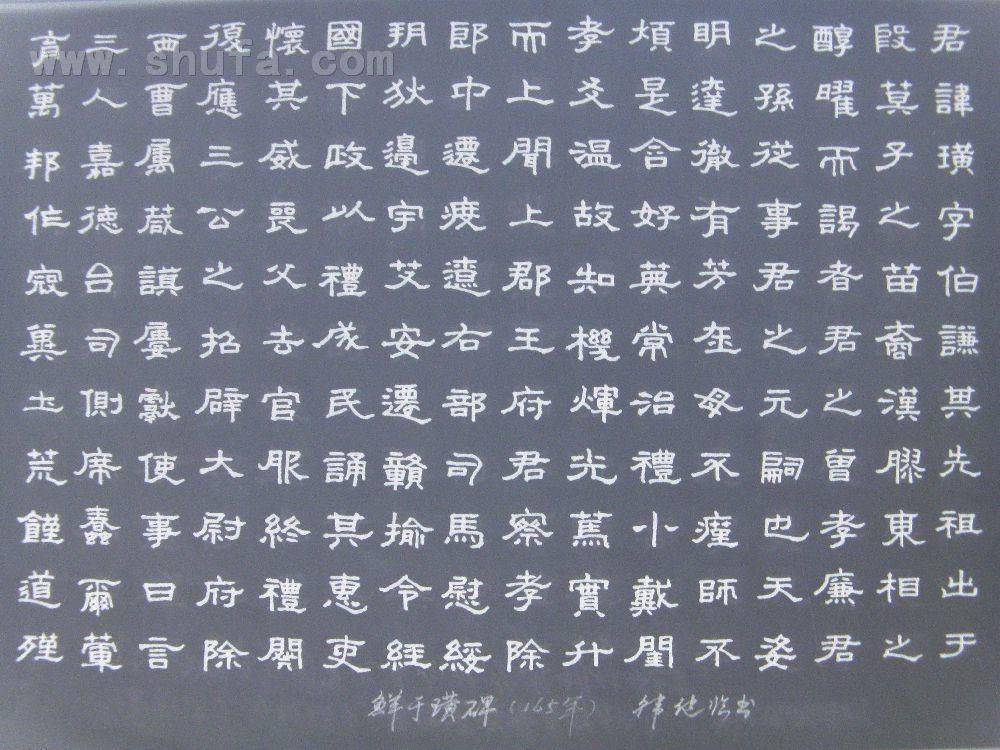 君諱璜字伯謙其先祖出于
殷莫子之苗裔漢膠東相之
醇曜而謁者君之曾孝廉君
之孫從事君之元嗣也天姿
明達徹有芳在母不瘽師不
煩是含好英常治禮小戴閨
孝友温故知機煇光篤實升
而上聞上郡王府君察孝除
郎中遷度遼右部司馬慰綏
玥狄邊宇艾安遷贛揄令經
國下政以禮成民誦其惠吏
懷其威喪父去官服終禮闋
復應三公之招辟大尉府除
西曹属葴謨屢獻使事日言
三人嘉德台司側席蠢爾葷
育萬邦作寇兾土荒饉道殣
鮮于璜碑(165年) 臨书
www.shufa.com